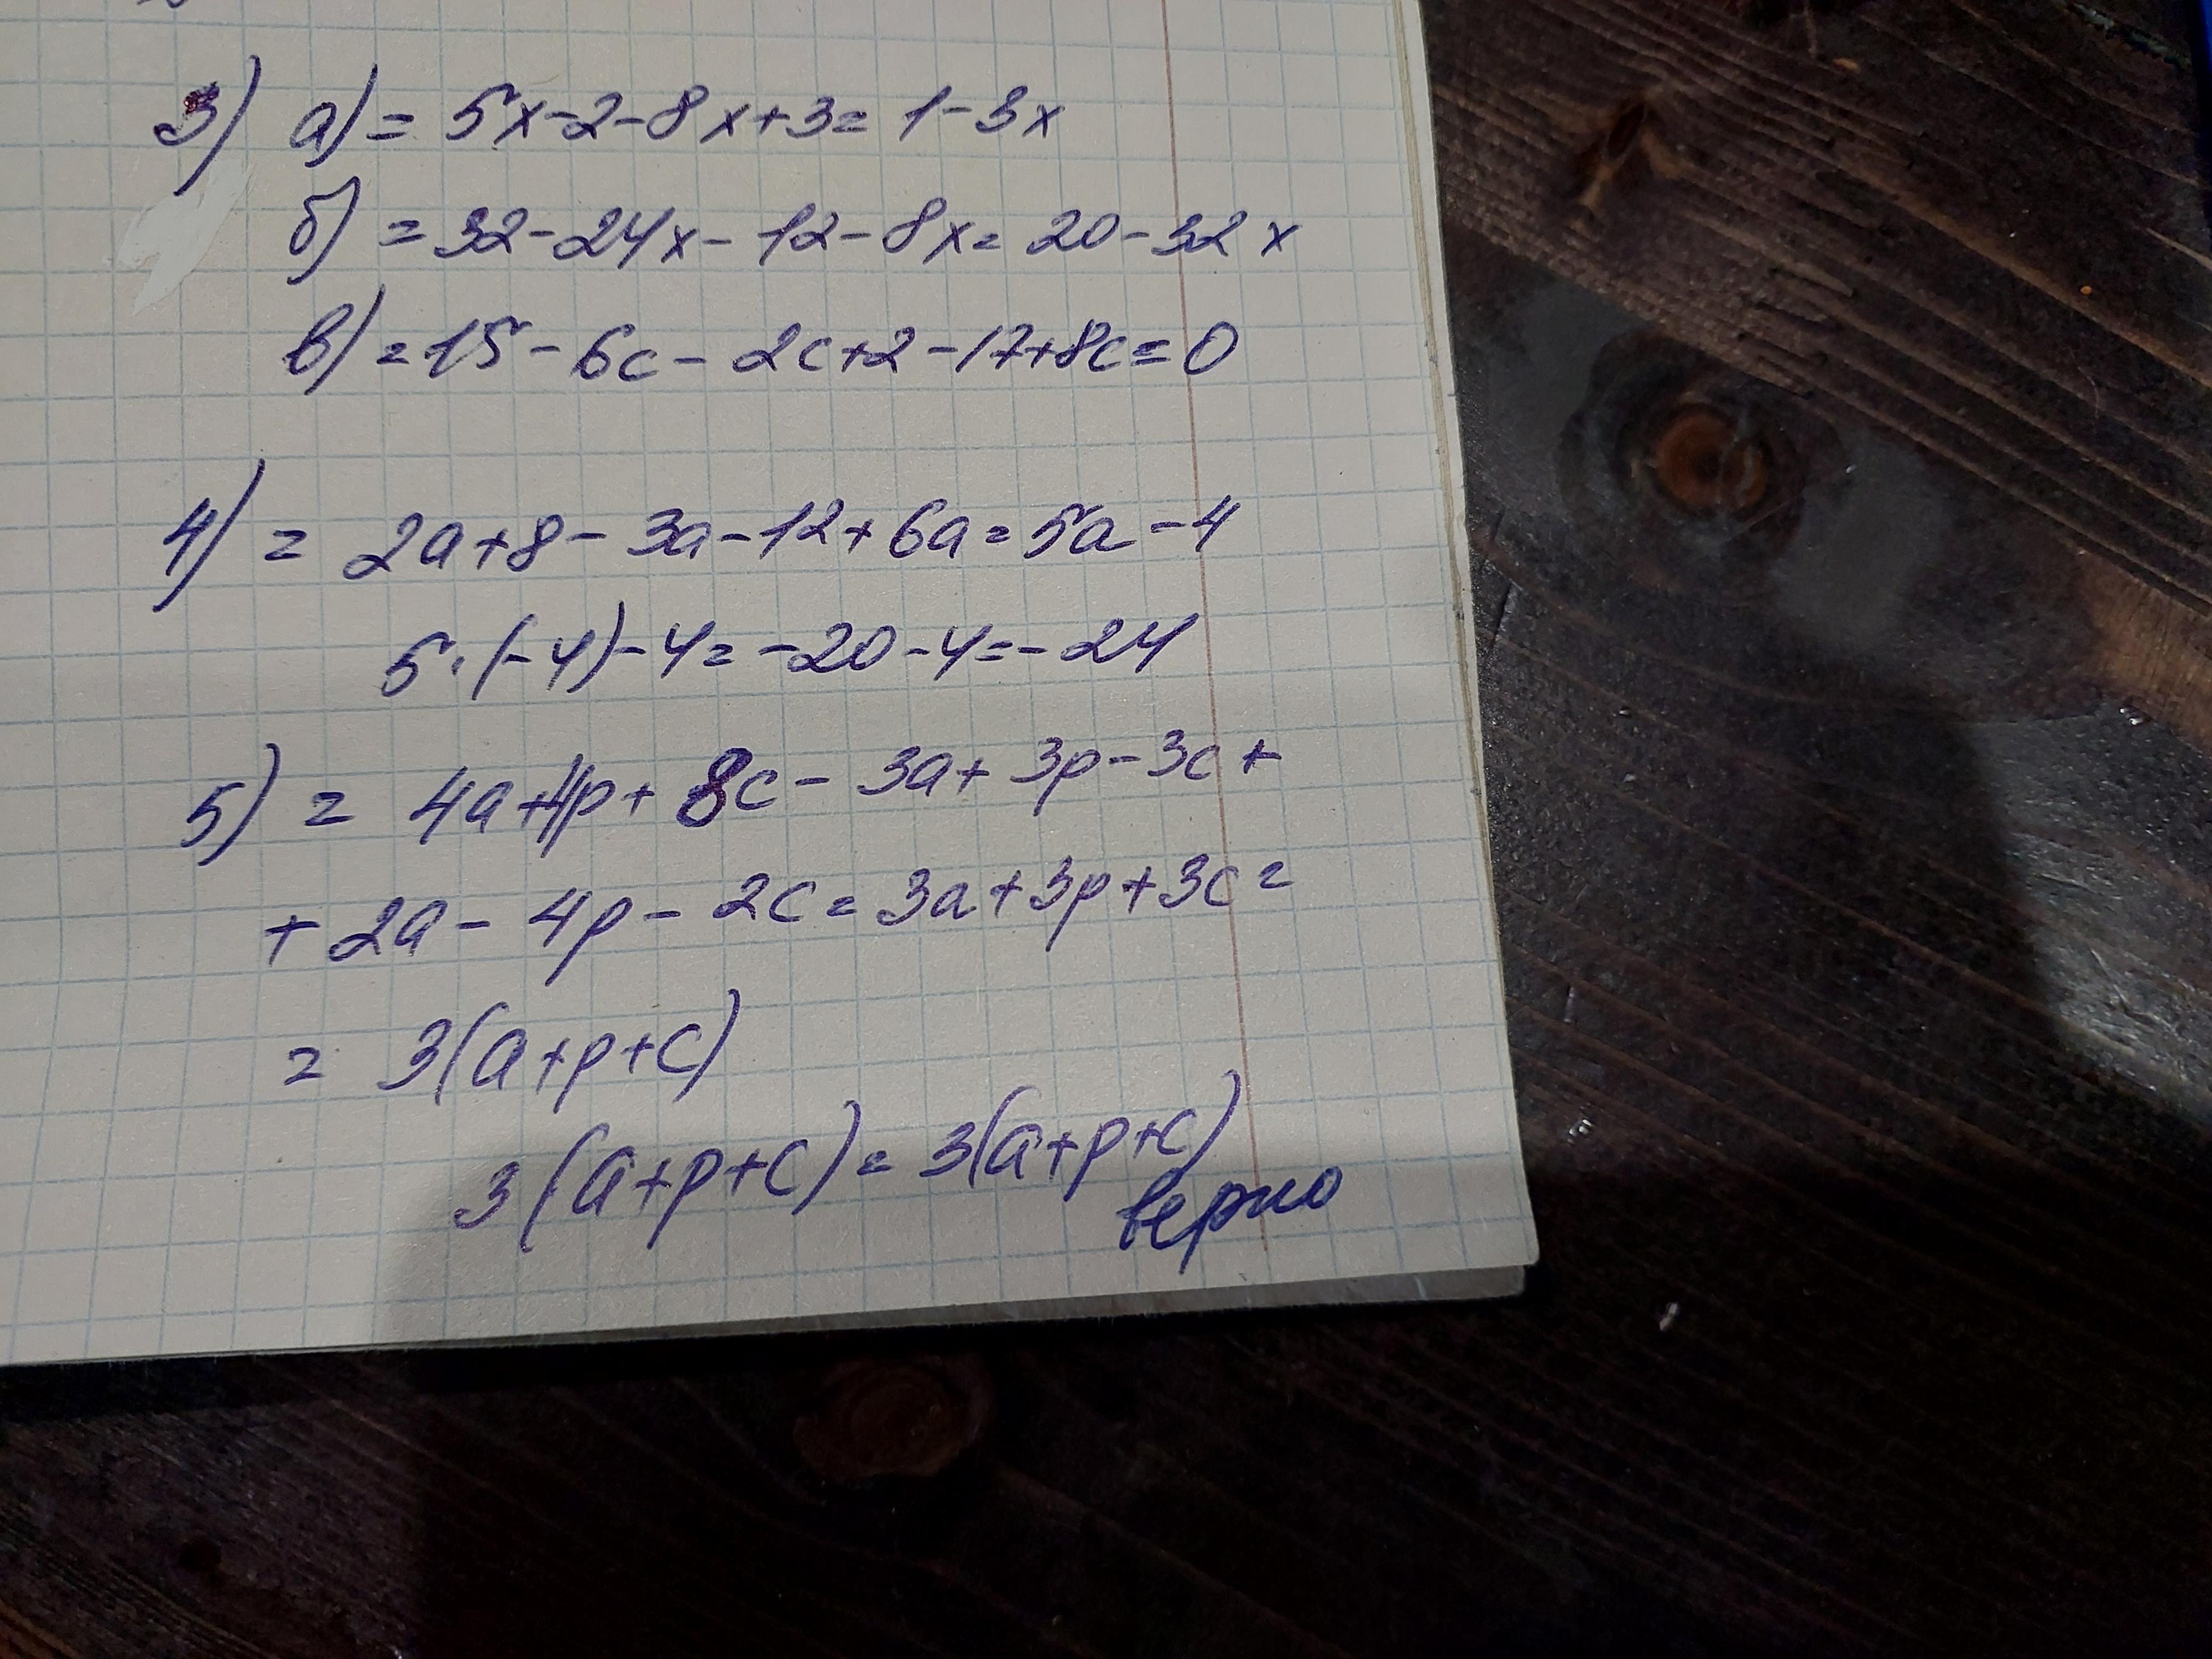 3) а) = 5x-2-8x+3= 1-3x
б) = 32-24x-12-8x= 20-32x
в) = 15-6c-2c+2-17+8c=0
4) = 2a+8-3a-12+6a=5a-4
5·(-4)-4= -20-4=-24
5) = 4a+4p+8c-3a+3p-3c+
+2a-4p-2c=3a+3p+3c=
= 3(a+p+c)
3(a+p+c)=3(a+p+c)
верно